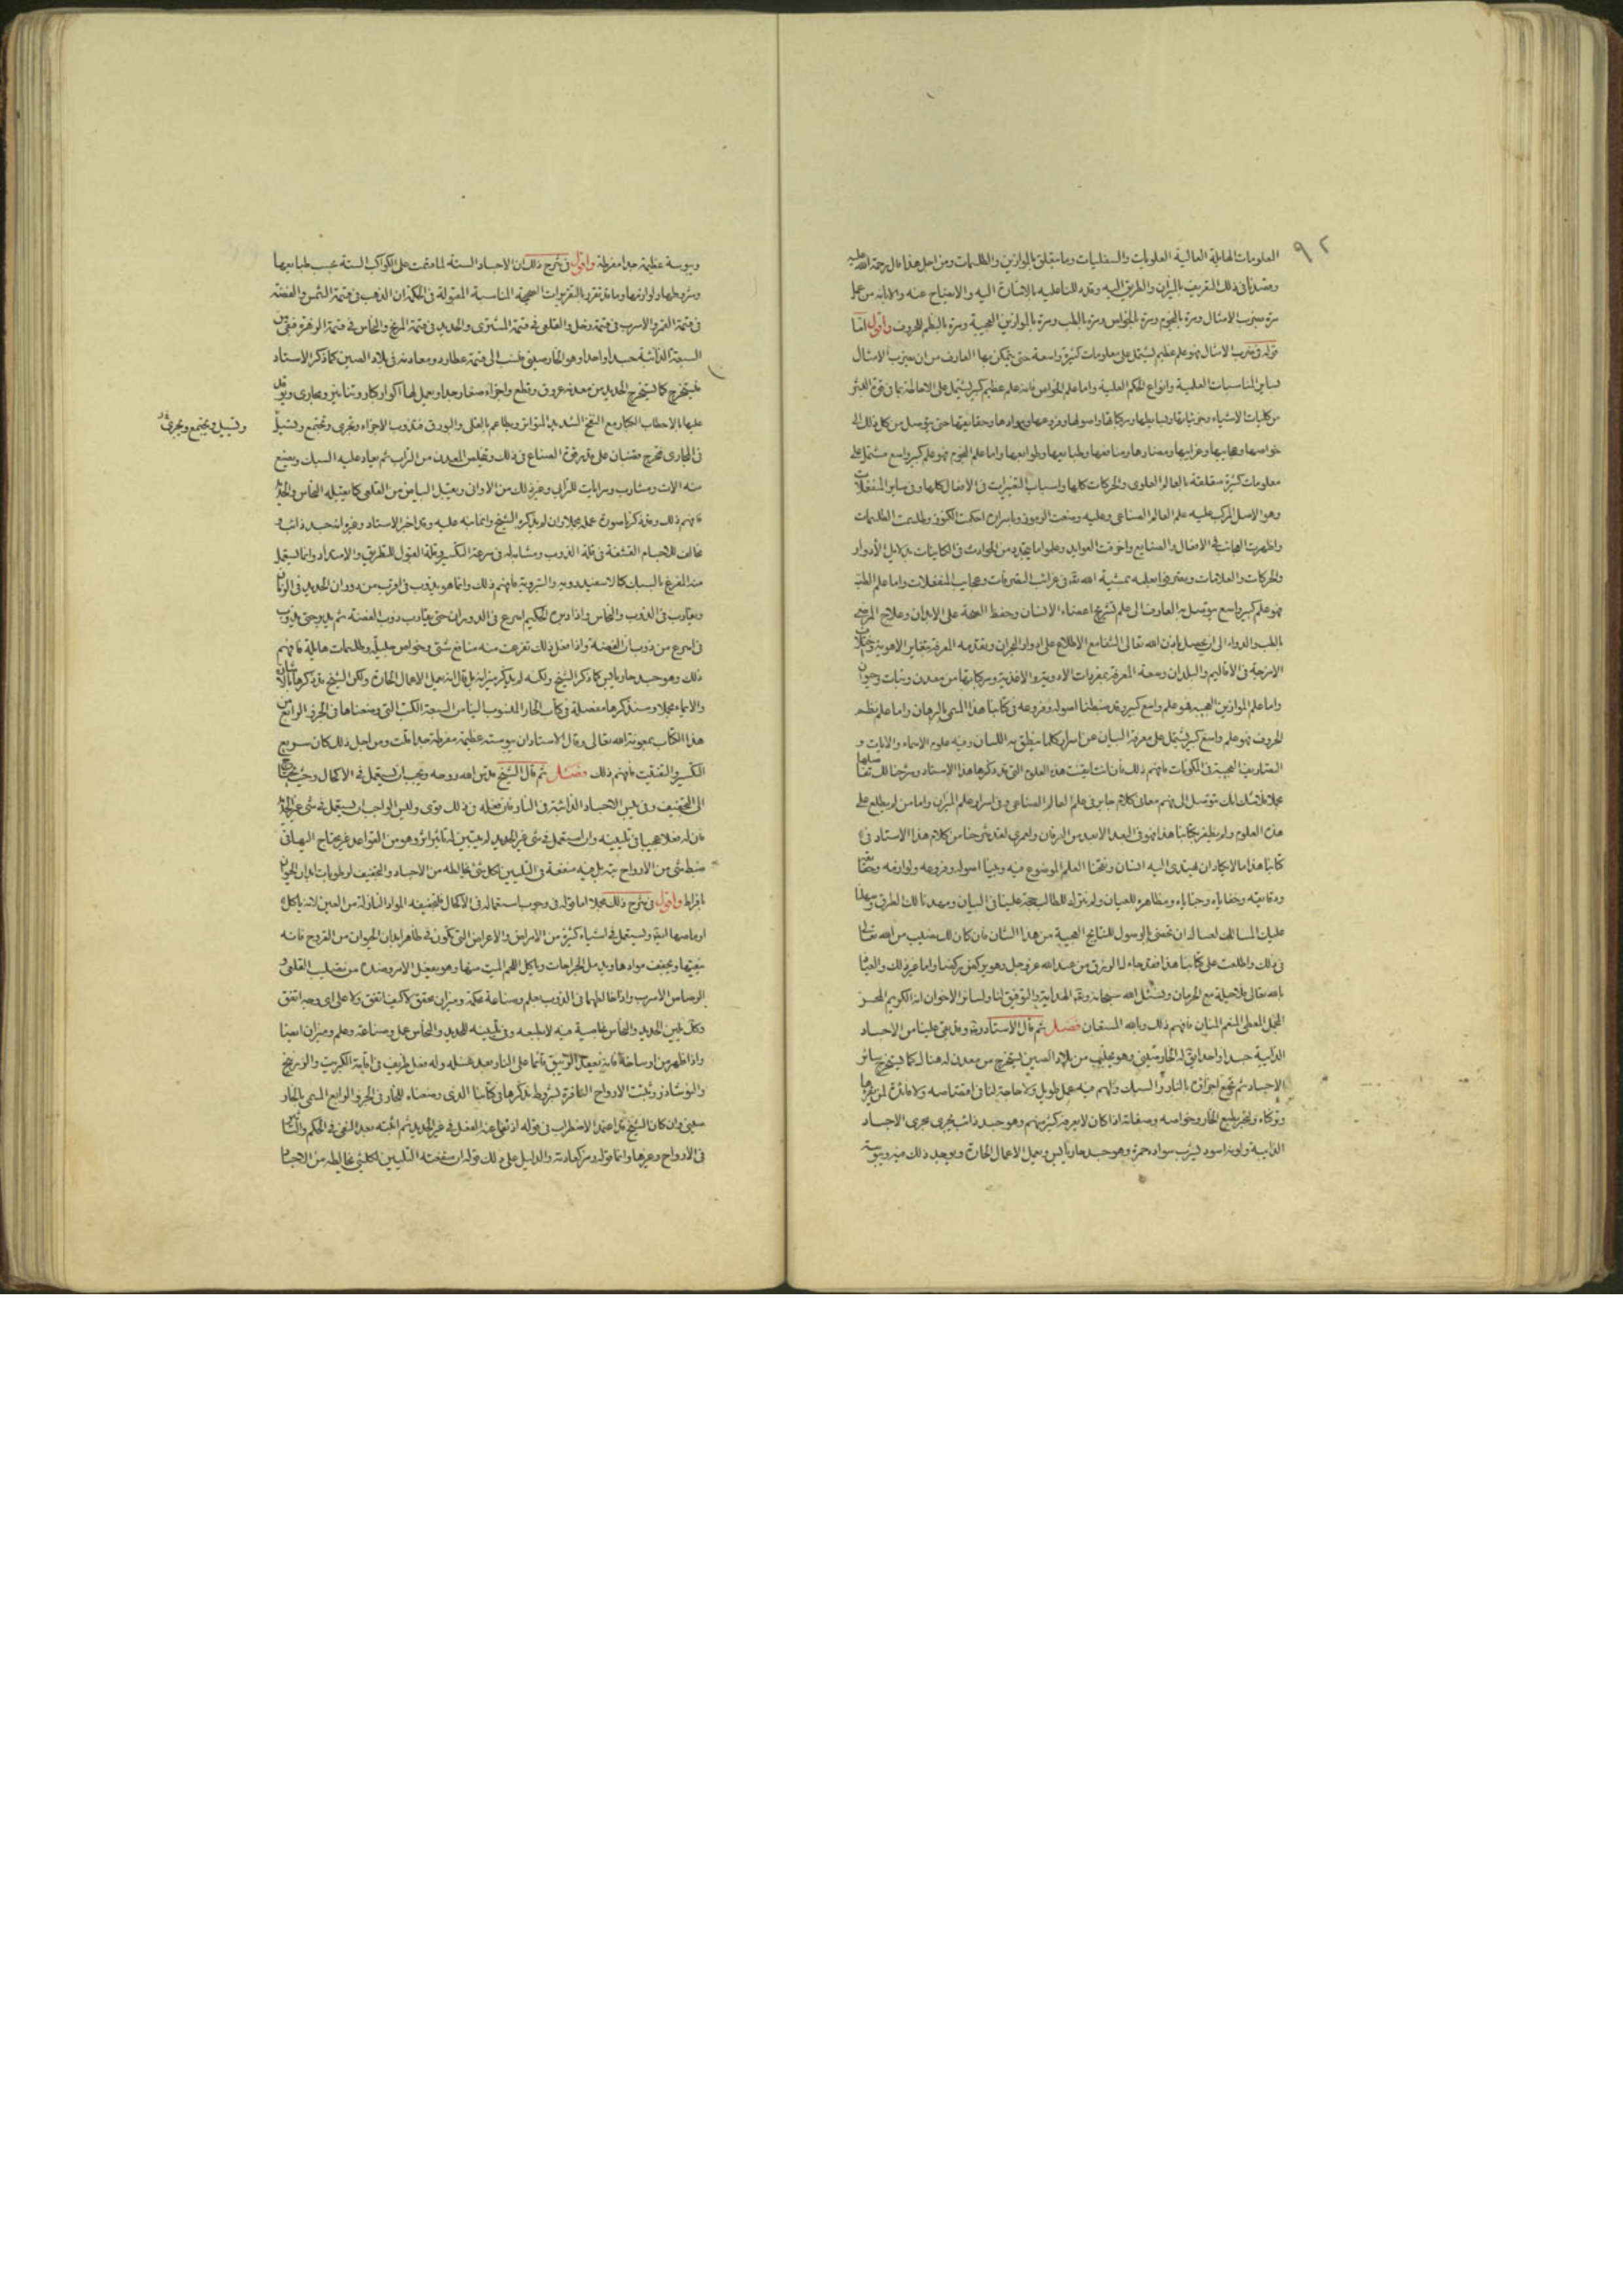 ٩٢
العلومات الهايلة العالية العلويات والسفليات وما يتعلق بالموازين والطلسمات ومن اجل هذا قال رحمة الله عليه
وقصدنا في ذلك التقريب بالميزان والطريق اليه وقد دللنا عليه بالاشارة اليه والايضاح عنه والابانه من عمل
مرة بضرب الامثال ومرة بالنجوم ومرة بالخواص ومرة بالطب ومرة بالموازين العجيبة ومرة بالنظم للحروف واقول اما
قوله في ضرب الامثال فهو علم عظيم يشتمل على معلومات كثيرة واسعة حتى يتمكن بها العارف من ان يضرب الامثال
بساير المناسبات العلمية وانواع الحكم العلمية واما علم الخواص فانه علم عظيم كبير يشتمل على الاحاطة بما في قوة البشر
من كليات الاشياء وجزئياتها وبسايطها ومركباتها واصولها وفروعها وموادها وحقايقها حتى يتوصل من كل ذلك الى
خواصها وعجايبها وغرايبها ومضارها ومنافعها وطبايعها وطوابعها واما علم النجوم فهو علم كبير واسع مشتمل على
معلومات كثيرة متعلقة بالعالم العلوى والحركات كلها واسباب التغيرات في الافعال كلها وفي ساير المنفعلات
وهو الاصل المركب عليه علم العالم الصناعى وعليه وضعت الرموز وباسراره احكمت الكنوز وطلسمت الطلسمات
واظهرت العجائب في الافعال والصنايع واخرقت العوايد وعلم ما يتجدد من الحوادث في الكاينات بدلايل الأدوار
والحركات والعلامات ويقتدر فيما يعلمه بمشية الله تعه في غرائب التصرفات وعجايب المنفعلات واما علم الطب
فهو علم كبير واسع يتوصل به العارف الى علم تشريح اعضاء الانسان وحفظ الصحة على الابدان وعلاج المرضى
بالطب والدواء الى ان يحصل باذن الله تعالى الشفا مع الاطلاع على ادوار البحران وتقدمه المعرفة بتغاير الاهوية واختلاف
الامزجة في الاقاليم والبلدان وصحة المعرفة بمفردات الادوية والاغذية ومركباتها من معدن ونبات وحيوان
واما علم الموازين العجيبة فهو علم واسع كبير وقد ضبطنا اصوله وفروعه في كتابنا هذا المسمى بالبرهان واما علم نظم
الحروف فهو علم واسع كبير يشتمل على معرفة البيان عن اسرار كلما ينطق به اللسان وفيه علوم الاسماء والايات و
التصاريف العجيبة في المكونات فافهم ذلك فان انت ايقنت هذه العلوم التي قد ذكرها هذا الاستاد وشرحنا لك تفصيلها
مجلا فلا شك انك تتوصل الى فهم معانى كلام جابر في علم العالم الصناعى وفي اسرار علم الميزان واما من لم يطلع على
هذه العلوم ولم يظفر بكتابنا هذا فهو في البعد الابعد من البرهان ولعمرى لقد شرحنا من كلام هذا الاستاد في
كتابنا هذا ما لا يكاد ان يهتدى اليه انسان وفتحنا العلم الموضوع فيه وبينا اصوله وفروعه ولوازمه وحقايقه
ودقايقه وخفاياه وخباياه ومظاهره للعيان ولم نترك للطالب حجة علينا في البيان ومهدنا لك الطرق وسهلنا
عليك المسالك لعسالك ان تحضى بالوصول للنتايج العجيبة من هذا الشان فان كان لك نصيب من الله تعالى
في ذلك واطلعت على كتابنا هذا فقد جاء لك الرزق من عند الله عز وجل وهو يركض ركضا واما غير ذلك والعياذ
بالله تعالى فلا حيلة مع الحرمان ونسئل الله سبحانه وتعه الهداية والتوفيق لنا ولسائر الاخوان انه الكريم المحسن
المجمل المعطى المنعم المنان فافهم ذلك وبالله المستعان فصـل ثم قال الاستاد ره وقد بقى علينا من الاجساد
الذايبة جسدا واحدا يق له الخارصينى وهو يجلب من بلاد الصين يستخرج من معدن له هنالك كما يستخرج سائر
الاجساد ثم تجمع اجزاؤه بالنار والسبك ولهم فيه عمل طويل ولا حاجة لنا في اقتصاصه ولا فائدة لمن يقرؤها
وتركناه ونخبر بطبع الخار وخواصه وصفاته اذا كان لا يعرفه كثير منهم وهو جسد ذائب يجرى مجرى الاجساد
الذايبة ولونه اسود يشرب سواده حمرة وهو جسد حار يابس ويعمل الاعمال الحارة ويوجد ذلك فيه ويبوسته
ويبوسة عظيمة جدا مفرطة واقول في شرح ذلك ان الاجساد الستة لما قسمت على الكواكب الستة بحسب طبايعها
وشروطها ولوازمها وما قد تقرر بالتقريرات الصحيحة المناسبة المقولة في الحكمة ان الذهب في قسمة الشمس والفضة
في قسمة القمر والاسرب في قسمة زحل والقلعى في قسمة المشترى والحديد في قسمة المريخ والنحاس في قسمة الزهرة فبقى من
السبعة الذائبة جسدا واحدا وهو الخارصينى فنسب الى قسمة عطارد ومعادنه في بلاد الصين كما ذكر الاستاد
فيستخرج كما يستخرج الحديد من معدنه عروق وقطع واجزاء صغار جدا ويعمل لها اكوار كبار وتنانير ومجارى ويوقد
عليها بالاحطاب الكبار مع النفخ الشديد المتواتر ويطاعم بالقلى والبورق فتذوب الاجزاء وتجرى وتجتمع وتسيل
في المجارى فتخرج قضبان على قدر قوة الصناع في ذلك وتخلص المعدن من التراب ثم يعاد عليه السبك ويصنع
منه الات ومشارب ومرايات للمرائى وغير ذلك من الاوانى ويقبل البياض من القلعى كما يقبله النحاس والحديد
فافهم ذلك وقد ذكرنا صورة عمله مجلا وان لم يذكره الشيخ وانما نبه عليه وقد اخبر الاستاد وغيره انه جسد ذائب
مخالف للاجسام القشفة في قلة الذوب ومشابه له في سرعة التكسير وقلة القبول للتطريق والامتداد وانما يستعمل
منه المفرغ بالسبك كالاسفيدرويه والشبروية فافهم ذلك وانما هو يذوب في اقرب من دوران الحديد في الزمان
ويقارب في الذوب والنحاس واذا دبره الحكيم اسرع في الدوران حتى يقارب ذوب الفضة ثم يدبر حتى يذوب
في اسرع من ذوبان الفضة واذا فعل ذلك تفرعت منه منافع شتى وخواص جليلة وطلسمات هايلة فافهم
ذلك وهو جسد حار يابس كما ذكر الشيخ ولكنه لم يذكر ميزانه بل قال انه يعمل الاعمال الحارة ولكن الشيخ قد ذكرها بالاشارة
والايماء مجلا وسنذكرها مفصلة في كتاب الخار المنسوب الينا من السبعة الكتب التي وضعناها في الجزء الرابع من
هذا الكتاب بمعونة الله تعالى وقال الاستاد ان يبوسته عظيمة مفرطة جدا قلت ومن اجل ذلك كان سريع
التكسير والتفتيت فافهم ذلك فصـل ثم قال الشيخ قدس الله روحه ويجب ان يستعمل في الاكحال وحيث يحتاج
الى التجفيف وفي يبس الاجساد الذائبة في النار فان فعله في ذلك قوى وليس الواجب ان يستعمل في شى غير الحديد
فان له فعلا عجيبا في تليينه وان استعمل في شى غير الحديد لم يتبين له تأثير اثر وهو من القواعد غير محتاج اليها في
ضبط شى من الارواح بتة بل فيه منفعة في التليين لكل شئ يخالطه من الاجساد والتجفيف لرطوبات ابدان الحيوان
بافراط واقول في شرح ذلك مجلا اما قوله في وجوب استعماله في الاكحال فلتجفيفه المواد النازلة من العين لانه ياكل
اوماصها ايضا ويستعمل في اشياء كثيرة من الامراض والاعراض التي تكون في ظاهر ابدان الحيوان من القروح فانه
ينقيها ويجفف موادها ويدمل الجراحات وياكل اللحم الميت منها وهو يفعل الامر وضده من تصليب القلعى و
الرصاص الاسرب واذا خالطهما في الذوب بعلم وصناعة محكمة وميزان محقق لا كيف اتفق ولا على اى وجه اتفق
وكك يلين الحديد والنحاس بخاصية فيه لا بطبعه وفي تليينه للحديد والنحاس عمل وصناعة وعلم وميزان ايضا
واذا طهر من اوساخه فانه يعقد الزيبق قائما على النار بعد غسله وله فعل طريف في اقامة الكبريت والزرنيخ
والنوشادر ويثبت الارواح النافرة بشروط نذكرها في كتابنا الذى وضعناه للخار في الجزء الرابع المسمى بالخار
صينى وان كان الشيخ قد اعتمد الاضطراب في قوله اذ نفى عنه الفعل في غير الحديد ثم اثبته بعد النفى في الحكم والتأثير
في الارواح وغيرها وانما قوله رمز كعادته والدليل على ذلك قوله ان منفعته التليين لكل شئ يخالطه من الاجساد
وتسيل وتجتمع وتجرى